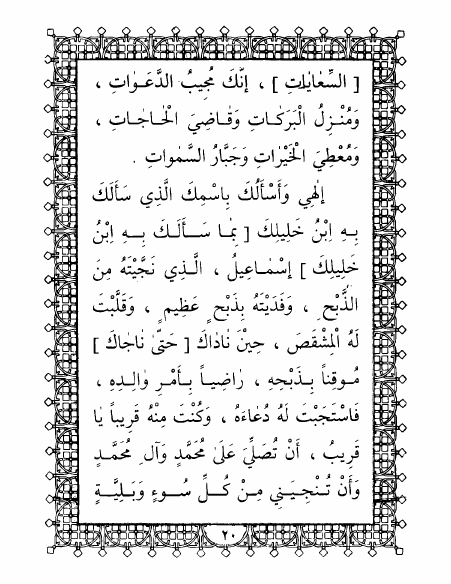 [ السِّعَايَاتِ ] ، إِنَّكَ مُجِيبُ الدَّعَوَاتِ ،
وَمُنْزِلُ الْبَرَكَاتِ وَقَاضِيَ الْحَاجَاتِ ،
وَمُعْطِيَ الْخَيْرَاتِ وَجَبَّارُ السَّمٰوَاتِ .
إِلٰهِي وَأَسْأَلُكَ بِاسْمِكَ الَّذِي سَأَلَكَ
بِهِ اِبْنُ خَلِيلِكَ [ بِمَا سَأَلَكَ بِهِ اِبْنُ
خَلِيلِكَ ] إِسْمَاعِيلُ ، الَّذِي نَجَّيْتَهُ مِنَ
الذَّبْحِ ، وَفَدَيْتَهُ بِذَبْحٍ عَظِيمٍ ، وَقَلَّبْتَ
لَهُ الْمِشْقَصَ ، حِيْنَ نَادَاكَ [ حَتَّىٰ نَاجَاكَ ]
مُوقِناً بِذَبْحِهِ ، رَاضِياً بِأَمْرِ وَالِدِهِ ،
فَاسْتَجَبْتَ لَهُ دُعَاءَهُ ، وَكُنْتَ مِنْهُ قَرِيباً يَا
قَرِيبُ ، أَنْ تُصَلِّيَ عَلَىٰ مُحَمَّدٍ وَآلِ مُحَمَّدٍ
وَأَنْ تُنْجِيَنِي مِنْ كُلِّ سُوءٍ وَبَلِيَّةٍ
٢٠